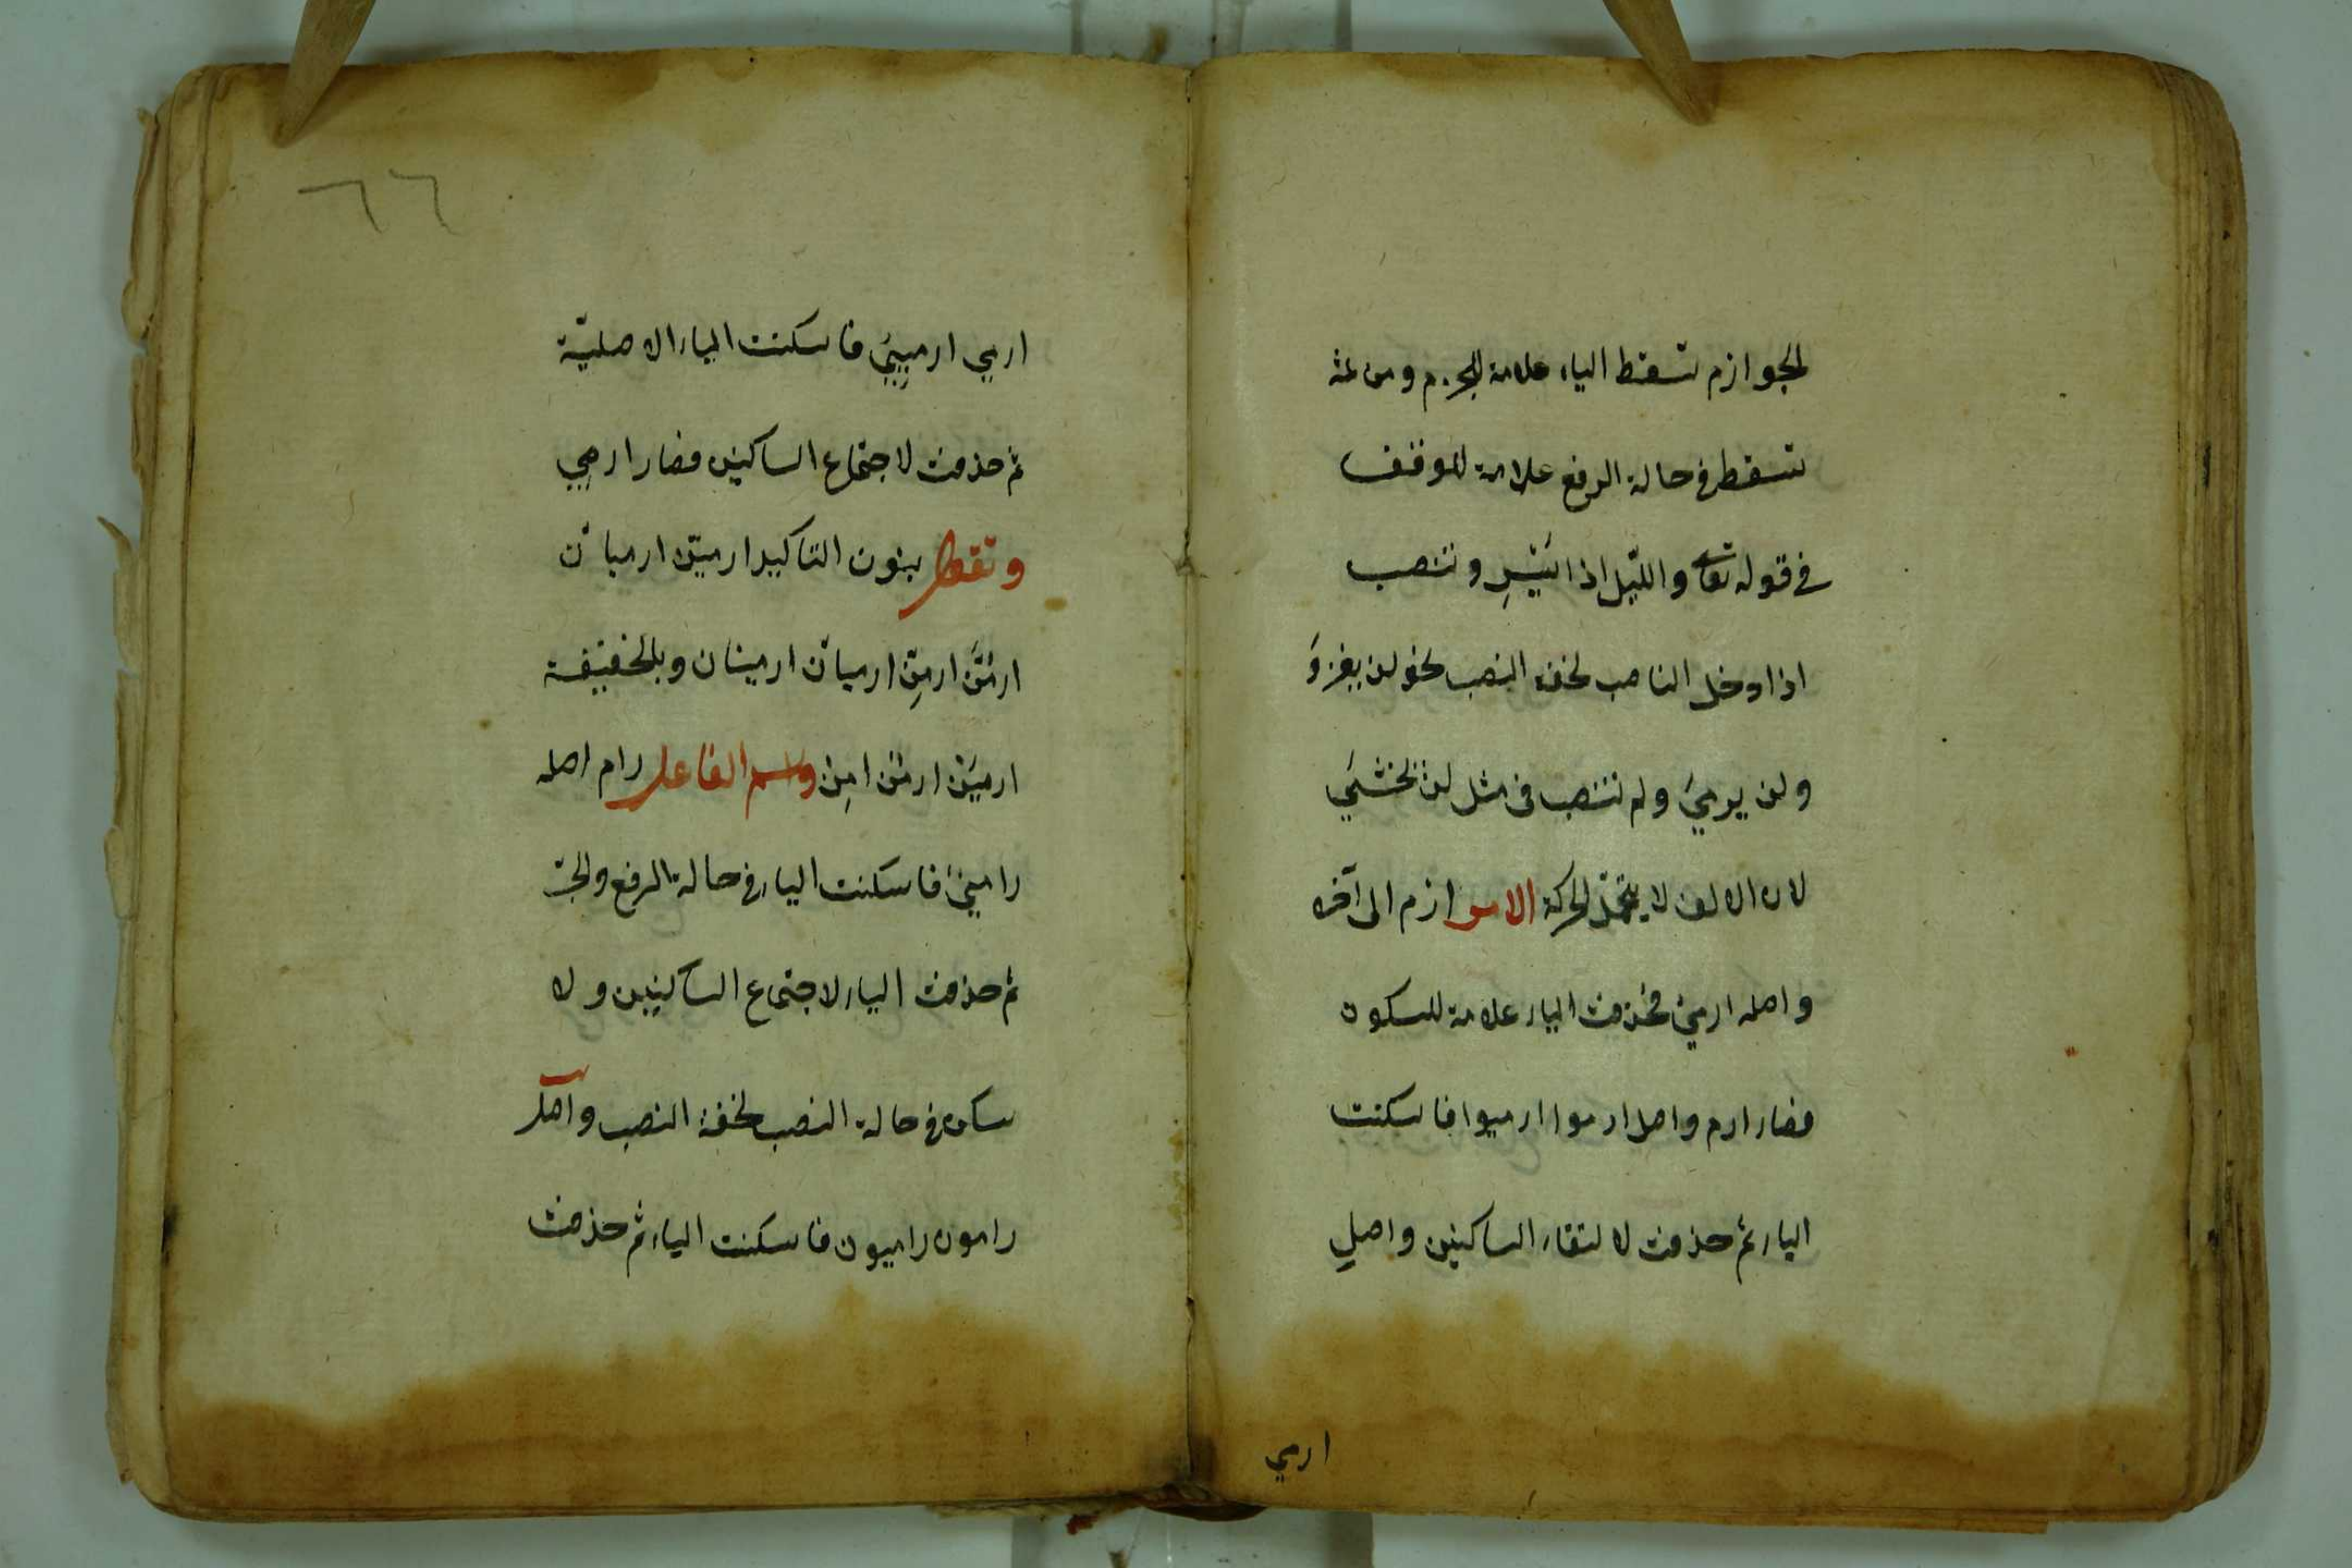 الجوازم تسقط الياء علامة للجزم ومن ثمة
تسقط في حالة الرفع علامة للوقف
في قوله تعا والليل اذا يَسْرِ وتنصب
اذا دخل الناصب لخفة النصب نحو لن يغزوَ
ولن يرميَ ولم تنتصب في مثل لن تخشيَ
لان الالف لا يتحمل الحركة الامر ارم الى آخره
واصله ارمي فحذفت الياء علامة للسكون
فصار ارم واصل ارموا ارميوا فاسكنت
الياء ثم حذفت لالتقاء الساكنين واصل
ارمي
٦٦
ارمي ارميي فاسكنت الياء الاصليّة
ثم حذفت لاجتماع الساكنين فصار ارمي
وتقول بنون التاكيد ارمينّ ارميانّ
ارمُنَّ ارمِنّ ارميانّ ارمينان وبالخفيفة
ارميَن ارمُن امِن واسم الفاعل رام اصله
راميٌ فاسكنت الياء في حالة الرفع والجرّ
ثم حذفت الياء لاجتماع الساكنين ولا
سكن في حالة النصب لخفة النصب واصل
رامون راميون فاسكنت الياء ثم حذفت